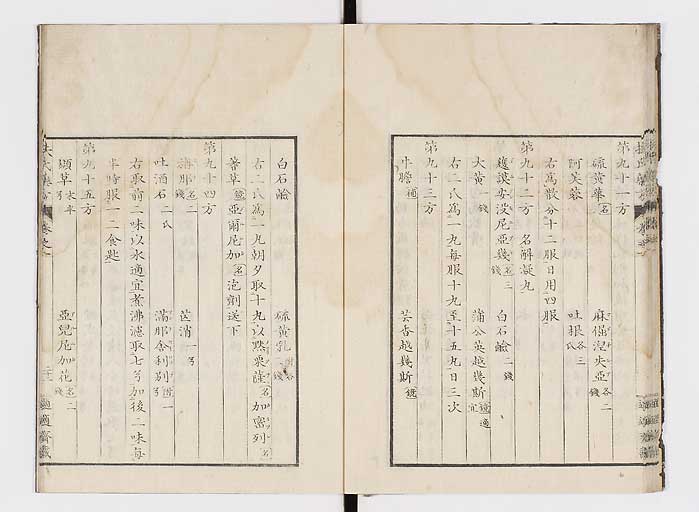 第九十一方
硫黄華 名 麻倔涅失亞 各二錢
阿芙蓉 吐根 各三氏
右爲散分十二服日用四服
第九十二方 名解凝丸
護謨安没尼亞幾 名三錢 白石鹼 二錢
大黄 一錢 蒲公英越幾斯 適宜
右二氏爲一丸每服十丸至十五丸日三次
第九十三方
牛膽 芸香越幾斯
白石鹼 硫黄乳 各一錢
右二氏爲一丸朝夕取十丸以 加密列 名
蓍草 亞爾尼加 名 泡劑送下
第九十四方
旃那 名二錢 芒消 一弓
吐酒石 二氏 滿那舍利別 一弓
右取前二味以水適宜煮沸濾取七弓加後二味每
半時服一二食匙
第九十五方
纈草 半弓 亞兒尼加花 名二錢
適適齋藏